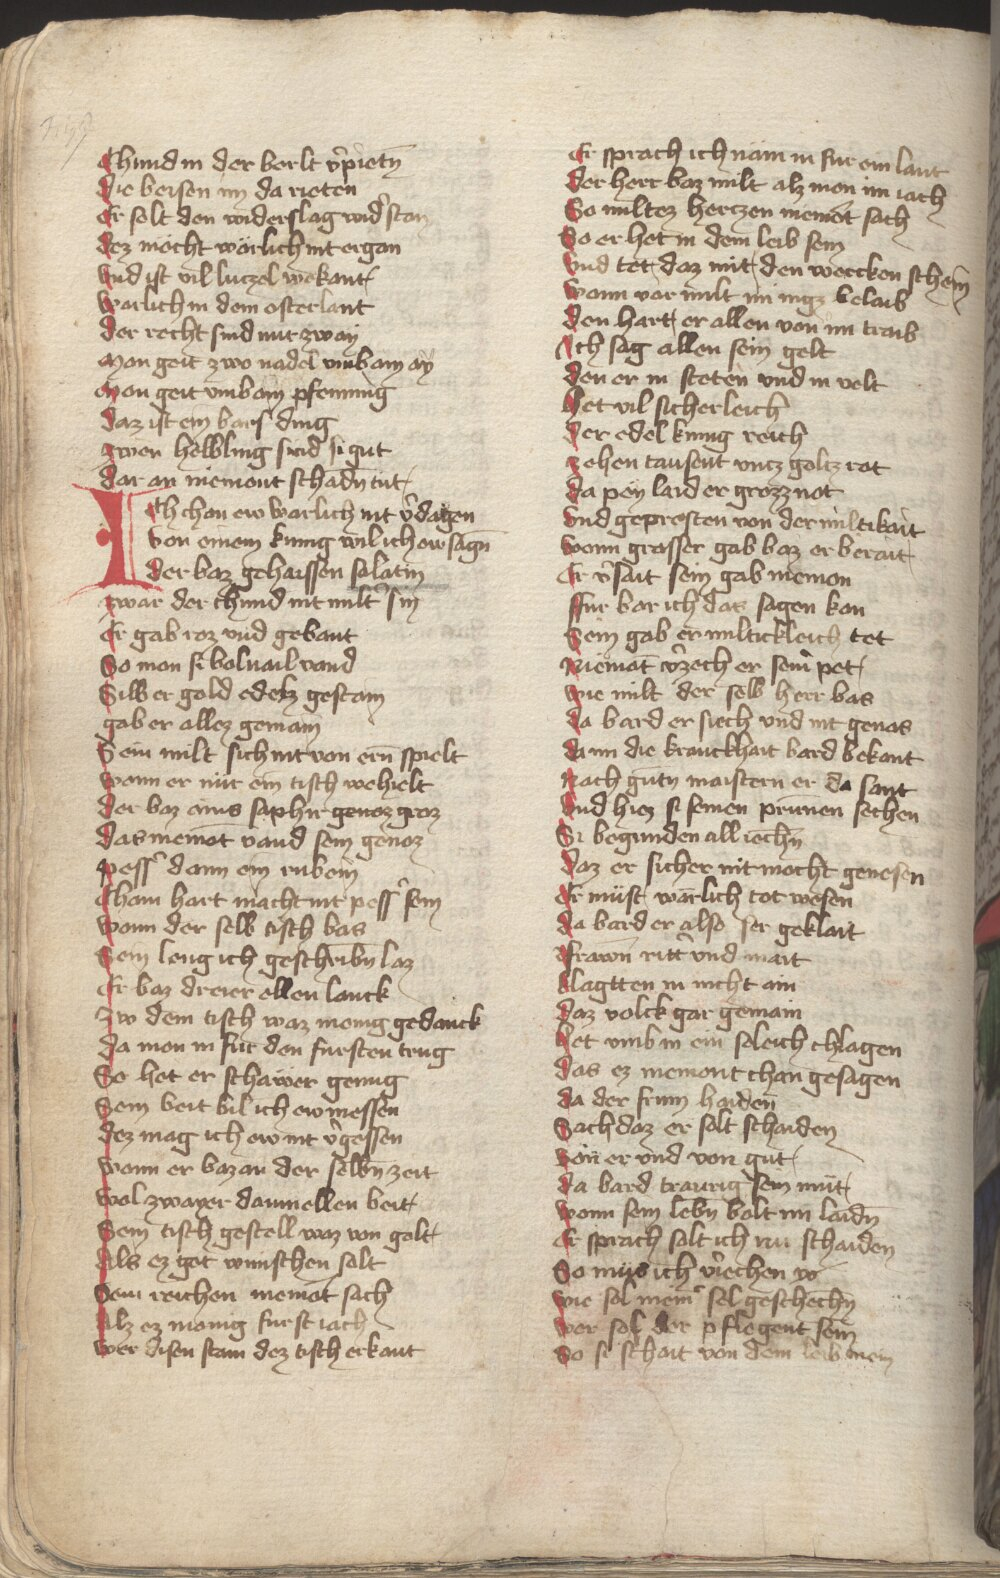 Chund in der berlt v̉pietn̄
die beisen im da rieten
Er solt den widerslag wid̉ stan
dez möcht wärlich nit ergan
Vnd ist vil luczel wekant
Warlich in dem osterlant
der recht sind nur zway
Man geit zwo nadel vmb ain ay
Man geit vmb ain pfenning
daz ist ein bars ding
zwen helbling sind si gut
dar an niemont schadn̄ tut
Ich chan ew warlich nit v̉dagen
Von einem kunig wil ich ew sagn̄
der baz gehaissen salatin
zwar der chund nit milt̉ sin
Er gab roz vnd gebant
So mon si boluail vand
Silber gold edelz gestain
gab er allez gemain
Sein milt sich nit von ern̄ spielt
Wonn er nur ein tisch wehielt
der baz ains saphir genoz groz
das niemōt vand sein genoz
pess̉ dann ein rubein
Cham hart macht nit pess̉ sein
Wonn der selb tisch bas
Sein leng ich geschribn̄ laz
Er baz dreier ellen lanck
Zw dem tisch waz monig gedanck
da mon in fur den fursten trug
So het er schawer genug
Sein beit bil ich ew messen
dez mag ich ew nit v̉gessen
Wonn er baz an der selbn̄ zeit
Wol zwayer daumellen beit
Sein tisch gestell waz von golt
Als ez got wunschen solt
Dem reichen niemōt sach
Alz ez monig furst iach
Wer disen stain dez tisch erkant
Er sprach ich näm in fur ein lant
Der herr baz milt alz mon im iach
So miltez herczen niemōt sach
So er het in dem leib sein
Vnd tet daz mit den wercken schein
Wonn vor milt im nigz belaib
den hart er allen von im traib
Ich sag allen sein gelt
den er in steten vnd in velt
Het vil sicherleich
der edel kunig reich
zehen tausent vncz goltz rot
da pey laid er grozz not
Vnd gepresten von der miltikait
Wonn grosser gab baz er berait
Er v̉sait sein gab niemon
ffur bar ich das sagen kan
Sein gab er miltickleich tet
Niemōt v̉zech er sein̉ pet
Wie milt der selb herr bas
da bard er siech vnd nit genas
da im die kranckhait bard bekant
Nach gutn̄ maistern er da sant
Vnd hiez si seinen prunen sechen
Si begunden all iechn̄
daz er sicher nit mocht genesen
Er müst wärlich tot wesen
da bard er also ser geklait
ffrawn̄ ritt̉ vnd mait
klagtten in nicht ain
daz volck gar gemain
Het vmb in ein soleich chlagen
das ez niemont chan gesagen
da der frum haiden
Sach daz er solt schaiden
Von er vnd von gut
da bard traurig sein mut
Wonn sein lebn̄ bolt im laidn̄
Er sprach solt ich nu schaiden
So mus ich v̉iechen w
Wie sol mein̉ sel geschechn̄
Wer sol der pflegent sein
So si schait von dem leib mein